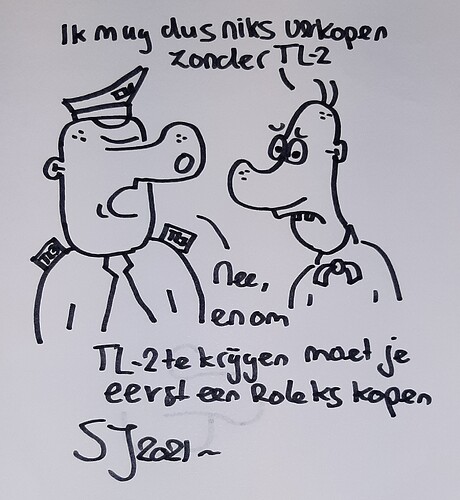 Ik mag dus niks verkopen
zonder TL-2
TLS
TLS
Nee,
en om
TL-2 te krijgen moet je
eerst een Roleks kopen
SJ 2021~